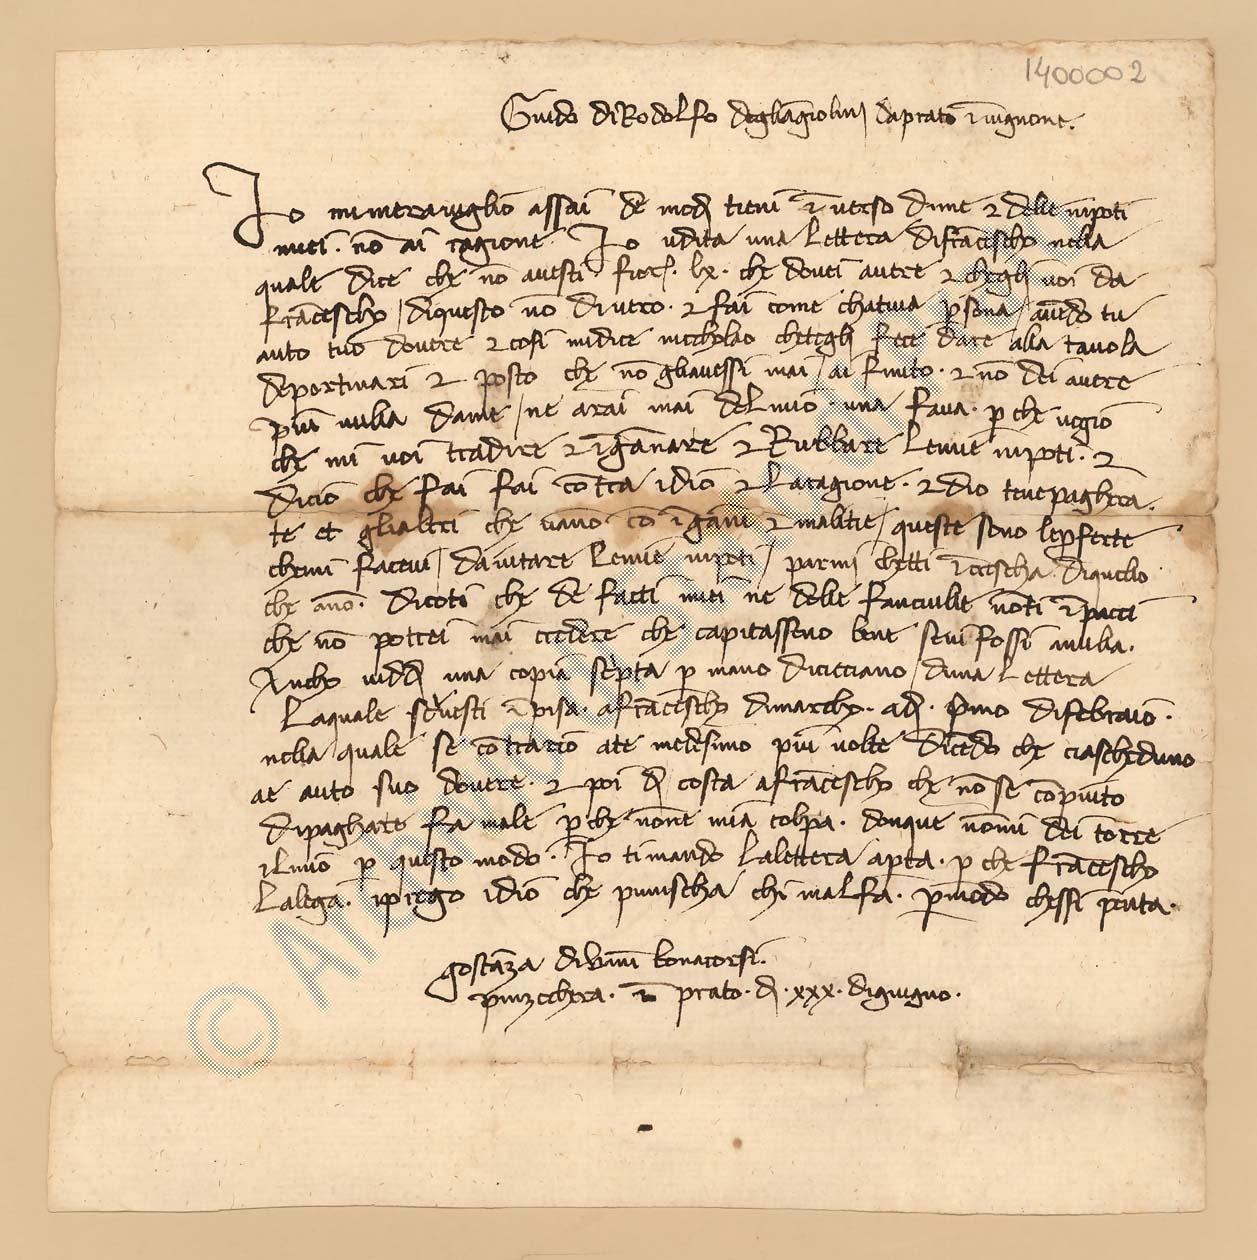 1400002
Guido di Rodolfo degl'āgiolini da prato ī vignone.
Io mi meraviglio assai de modi tieni īverso di me & delle nipoti
miei. nō ai ragione. Io udita una lettera di frācescho nella
quale dice che nō avesti fior. lx. che dovei avere & chegli voi da
frācescho / di questo nō di vero. & fai come chativa psona / avēdo tu
auto tuo dovere & cosi mi dice nicholao chetegli fece dare alla tavola
de portinari & posto che nō gl'avessi mai / ai finito. & nō dei avere
piu nulla da me / ne arai mai del mio una fava. p che vegio
che mi voi tradire & īgānare & Rubbare le mie nipoti. &
di cio che fai fai cōtra idio & la ragione. & dio te ne pagherā
te et gli altri che vano co īgāni & malitie / queste sono le pferte
che mi facevi / d'aiutare le mie nipoti / parmi chetti īcrescha di quello
che āno. Dicoti che de fatti miei ne delle fanciulle nōti īpacci
che nō potrei mai credere che capitasseno bene sevi fossi nulla.
Ancho viddi una copia scripta p mano di cicciano / d'una lettera
la quale scrivesti ī pisa a frācescho di marcho. adi. primo di febraio.
nella quale se cōtrario ate medesimo piu volte dicēdo che ciascheduno
ae auto suo dovere. & poi di costa a frācescho che nō se cōpiuto
di paghare fa male p che none mia colpa. donque nōmi dei torre
il mio p questo modo. Io ti mando la lettera apta. p che frācescho
la lega. i prego idio che punischa chi mal fa. p modo chessi penta.
gostāza di Vāni bonacorsi.
pinzochera. in prato. di. xxx. di giugno.
©